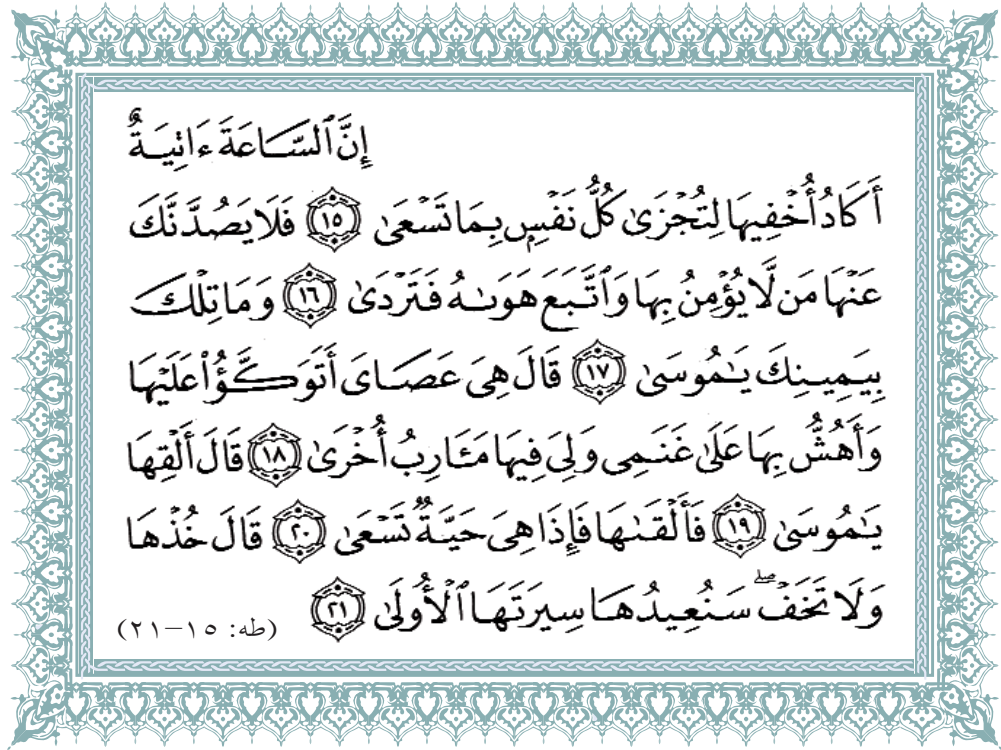 إِنَّ ٱلسَّاعَةَ ءَاتِيَةٌ
أَكَادُ أُخْفِيهَا لِتُجْزَىٰ كُلُّ نَفْسٍۭ بِمَا تَسْعَىٰ ١٥ فَلَا يَصُدَّنَّكَ
عَنْهَا مَن لَّا يُؤْمِنُ بِهَا وَٱتَّبَعَ هَوَىٰهُ فَتَرْدَىٰ ١٦ وَمَا تِلْكَ
بِيَمِينِكَ يَٰمُوسَىٰ ١٧ قَالَ هِىَ عَصَاىَ أَتَوَكَّؤُا۟ عَلَيْهَا
وَأَهُشُّ بِهَا عَلَىٰ غَنَمِى وَلِىَ فِيهَا مَـَٔارِبُ أُخْرَىٰ ١٨ قَالَ أَلْقِهَا
يَٰمُوسَىٰ ١٩ فَأَلْقَىٰهَا فَإِذَا هِىَ حَيَّةٌ تَسْعَىٰ ٢٠ قَالَ خُذْهَا
وَلَا تَخَفْ ۖ سَنُعِيدُهَا سِيرَتَهَا ٱلْأُولَىٰ ٢١ (طه: ١٥-٢١)